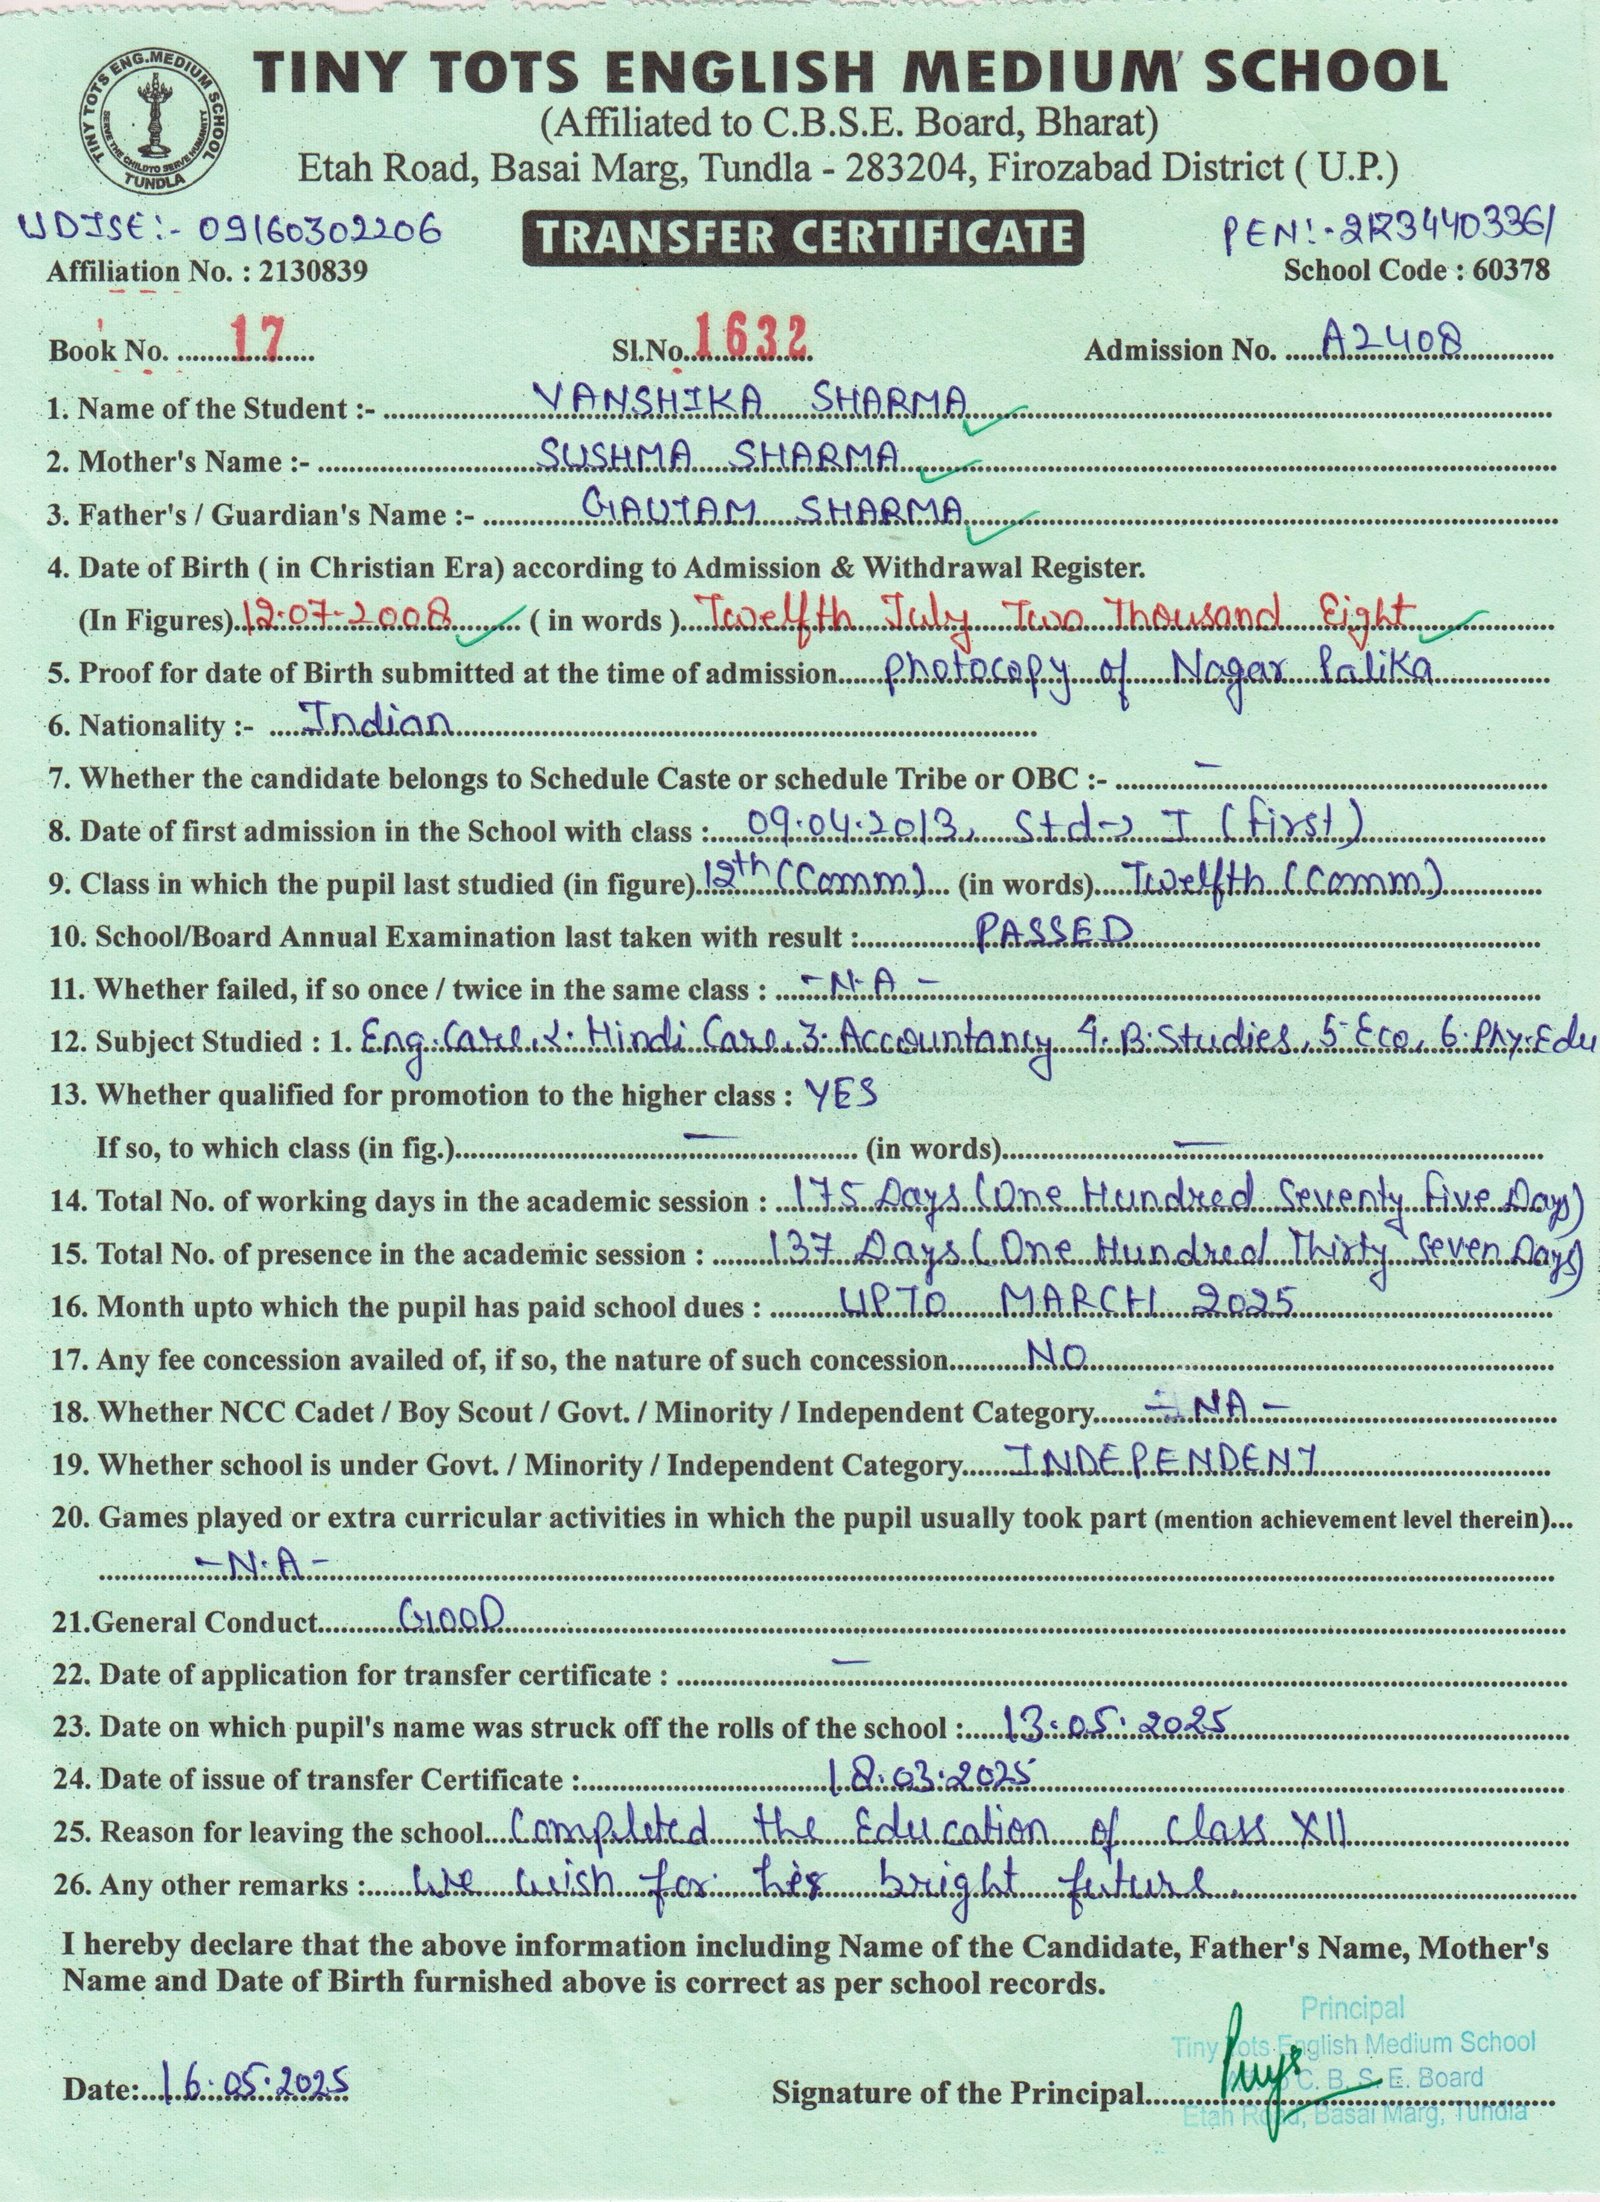 TINY TOTS ENG.MEDIUM SCHOOL
SERVE THE CHILD TO SERVE HUMANITY
TUNDLA
TINY TOTS ENGLISH MEDIUM SCHOOL
(Affiliated to C.B.S.E. Board, Bharat)
Etah Road, Basai Marg, Tundla - 283204, Firozabad District ( U.P.)
UDISE:- 09160302206
TRANSFER CERTIFICATE
PEN:-
Affiliation No. : 2130839
School Code : 60378
Book No. 17 Sl.No. 1632 Admission No. A2408
1. Name of the Student :- VANSHIKA SHARMA
2. Mother's Name :- SUSHMA SHARMA
3. Father's / Guardian's Name :- GAUTAM SHARMA
4. Date of Birth ( in Christian Era) according to Admission & Withdrawal Register.
(In Figures) 12.07.2008 ( in words ) Twelfth July Two Thousand Eight
5. Proof for date of Birth submitted at the time of admission photocopy of Nagar Palika
6. Nationality :- Indian
7. Whether the candidate belongs to Schedule Caste or schedule Tribe or OBC :- –
8. Date of first admission in the School with class : 09.04.2013, Std→ I (first)
9. Class in which the pupil last studied (in figure) 12th (Comm) (in words) Twelfth (Comm)
10. School/Board Annual Examination last taken with result : PASSED
11. Whether failed, if so once / twice in the same class : -N.A-
12. Subject Studied : 1. Eng.Core, 2. Hindi Core, 3. Accountancy 4. B.Studies, 5 Eco, 6.Phy.Edu
13. Whether qualified for promotion to the higher class : YES
If so, to which class (in fig.) — (in words) —
14. Total No. of working days in the academic session : 175 Days (One Hundred Seventy Five Days)
15. Total No. of presence in the academic session : 137 Days (One Hundred Thirty Seven Days)
16. Month upto which the pupil has paid school dues : UPTO MARCH 2025
17. Any fee concession availed of, if so, the nature of such concession NO
18. Whether NCC Cadet / Boy Scout / Govt. / Minority / Independent Category - NA -
19. Whether school is under Govt. / Minority / Independent Category INDEPENDENT
20. Games played or extra curricular activities in which the pupil usually took part (mention achievement level therein)...
-N.A-
21.General Conduct GOOD
22. Date of application for transfer certificate : —
23. Date on which pupil's name was struck off the rolls of the school : 13.05.2025
24. Date of issue of transfer Certificate : 18.03.2025
25. Reason for leaving the school Completed the Education of class XII
26. Any other remarks : We wish for her bright future.
I hereby declare that the above information including Name of the Candidate, Father's Name, Mother's
Name and Date of Birth furnished above is correct as per school records.
Principal
Tiny Tots English Medium School
C. B. S. E. Board
Etah Road, Basai Marg, Tundla
Date: 16.05.2025 Signature of the Principal